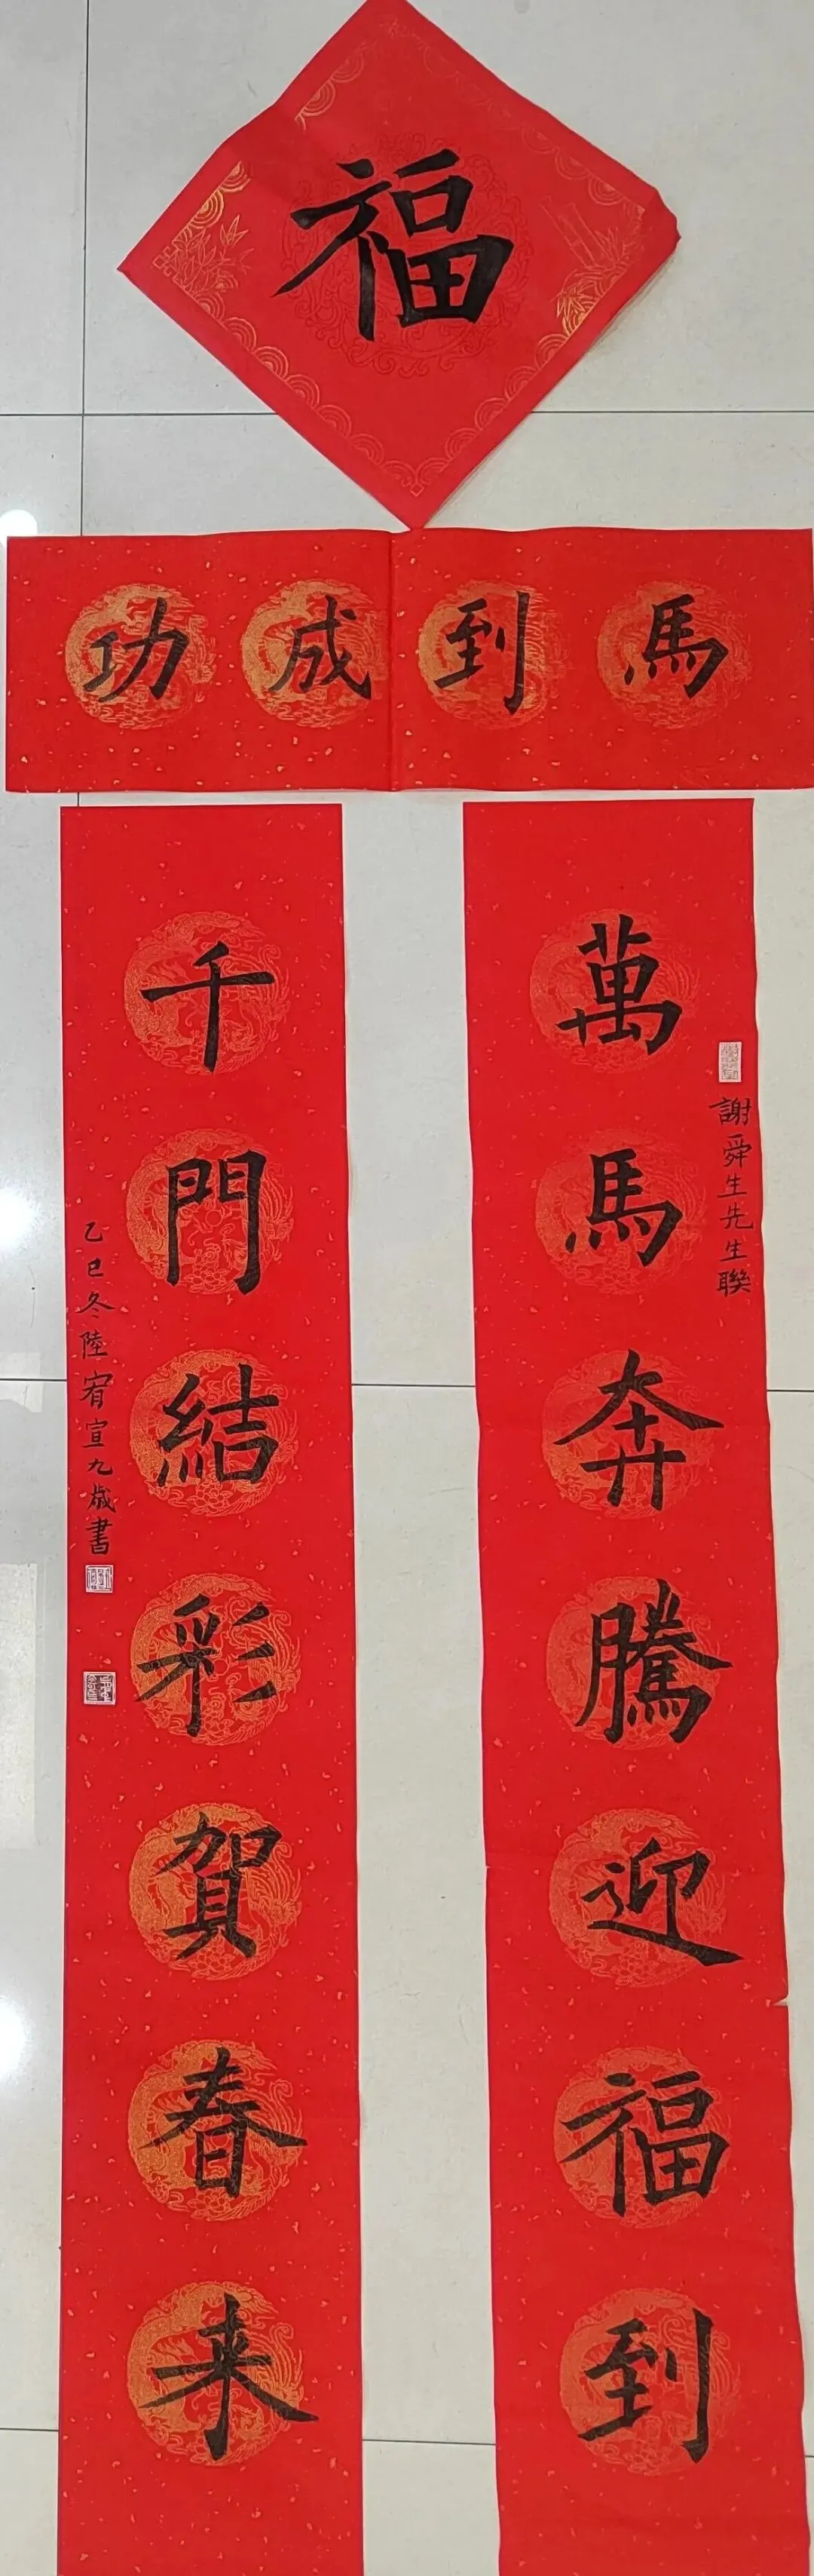 福
馬到成功
萬馬奔騰迎福到
謝舜生先生聯
千門結彩賀春来
乙巳冬陸宥宣九歲書